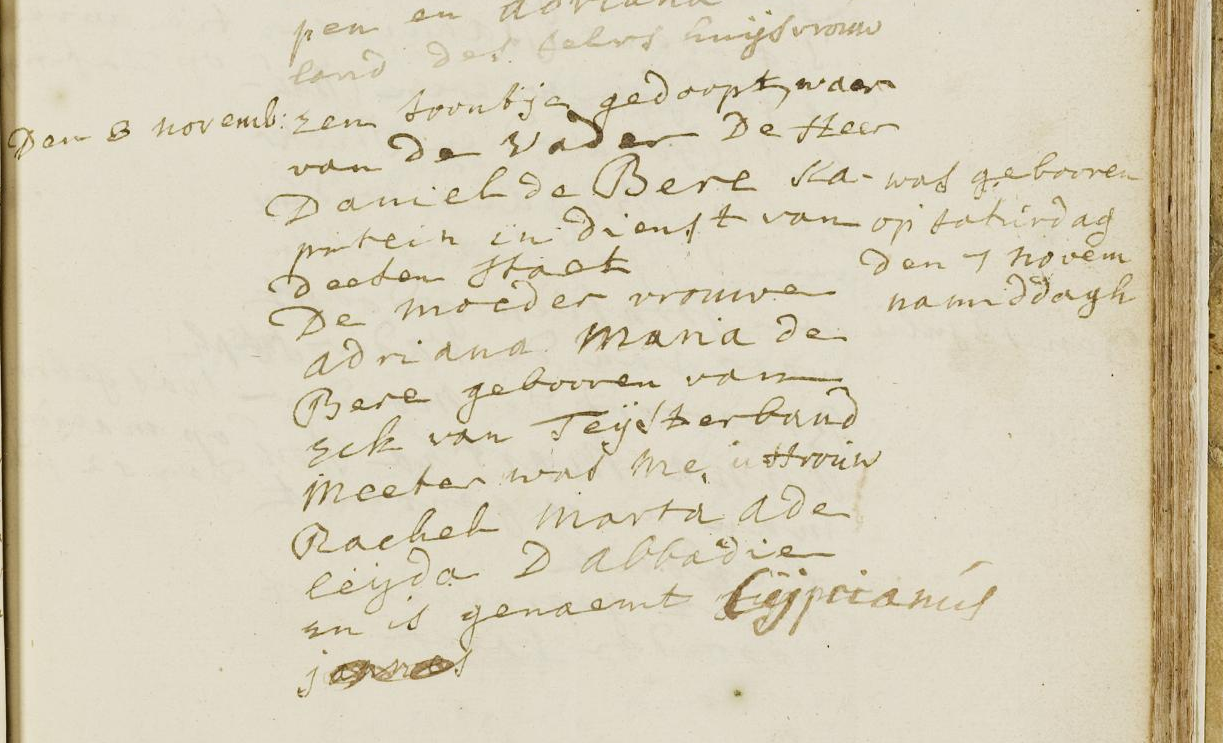 pen en adriana
land des selvs huijsvrouw
Den 8 novemb: een soontje gedoopt, waer
van de Vader De Heer
Daniel de Bere Ka-
pitein in dienst van
deesen staet
De moeder vrouwe
adriana Maria de
Bere gebooren van
Eck van Teijsterband
meeter was Me. u Hrouw
Rachel Marta ade
leijda D abbadie
en is genaemt Cijprianús
was gebooren
op saturdag
den 7 novem
namiddagh